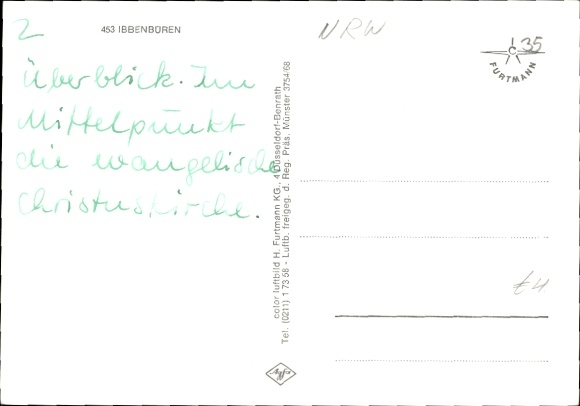 2
453 IBBENBÜREN
NRW
35
C
FURTMANN
Überblick. Im
Mittelpunkt
die evangelische
Christuskirche.
color luftbild H. Furtmann KG., 4 Düsseldorf-Benrath
Tel. (0211) 1 73 58 - Luftb. freigeg. d. Reg. Präs. Münster 3754/68
Agfa